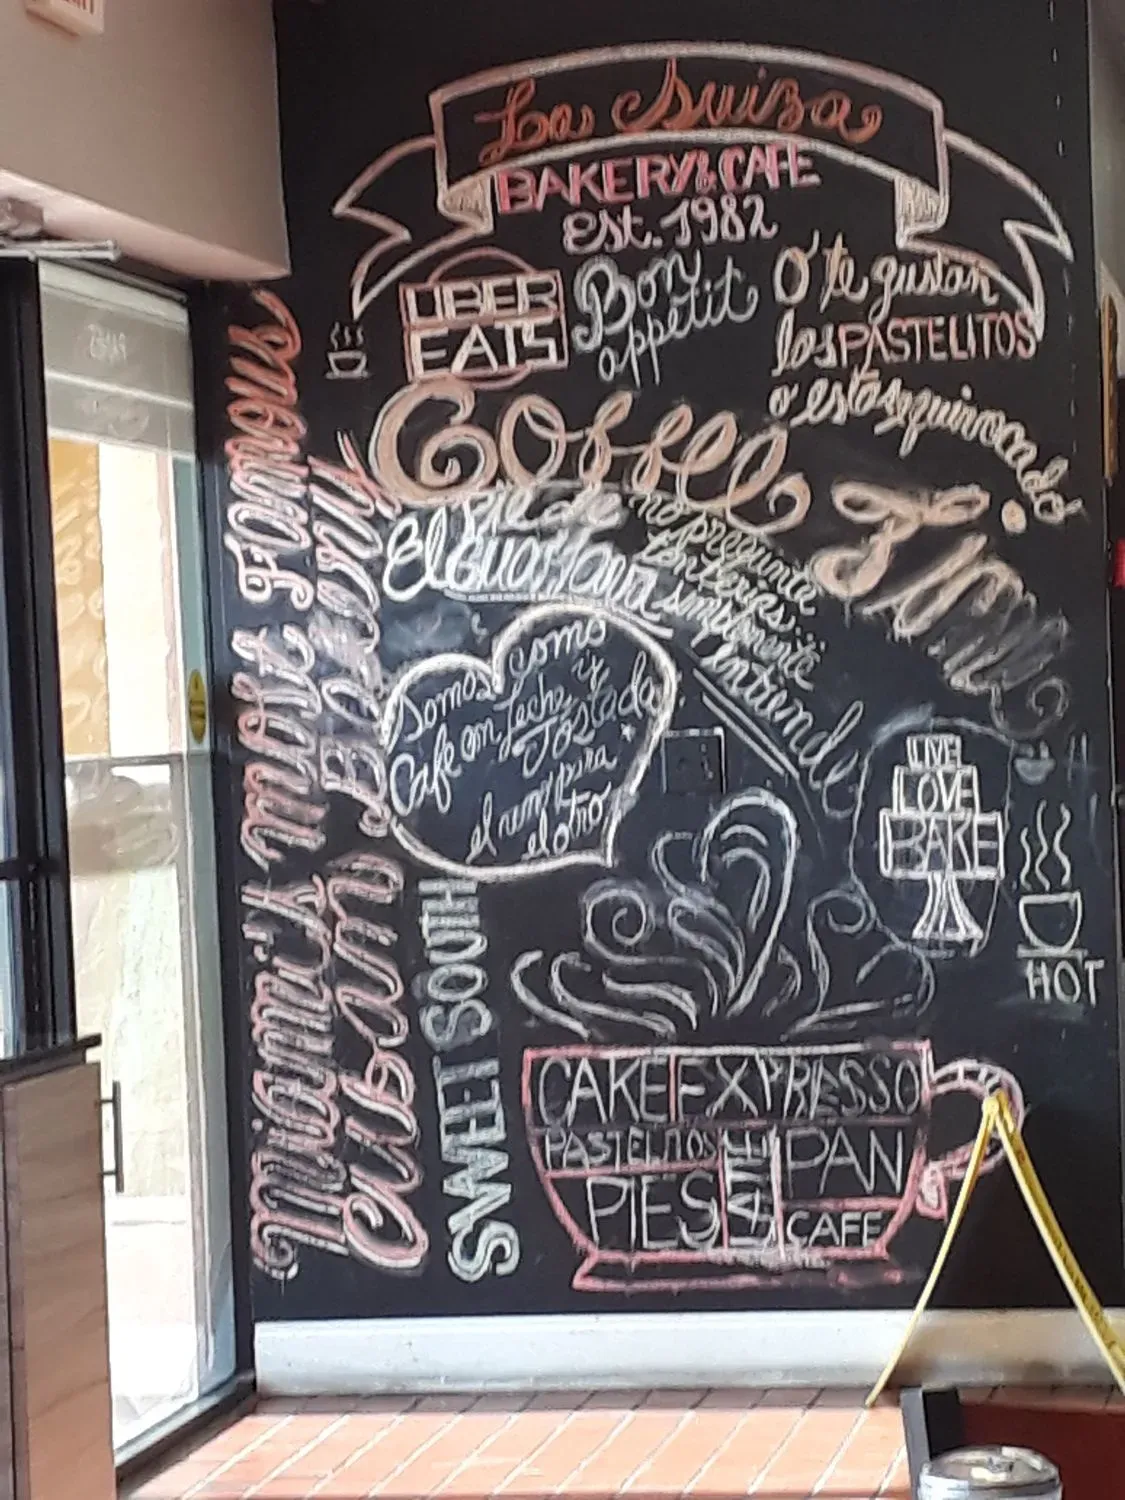 La Suiza
BAKERY & CAFE
est. 1982
UBER
EATS
Bon
appetit
O te gustan
los PASTELITOS
o estas equivocado
Coffee Time
El Pie de
Guayaba
no pregunta
simplemente
entiende
Somos como
Cafe con Leche y
Tostada
el uno para
el otro
LIVE
LOVE
BAKE
HOT
Miami's most Famous
Cuban Bakery
SWEET SOUTH
CAKE EXPRESSO
PASTELITOS
PAN
PIES
CAFE